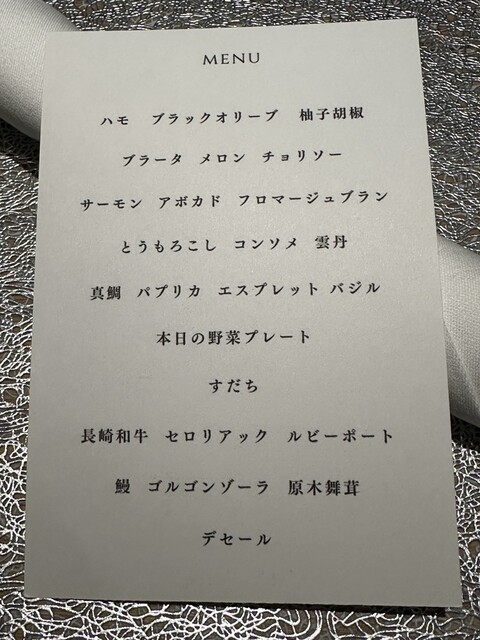 MENU
ハモ ブラックオリーブ 柚子胡椒
ブラータ メロン チョリソー
サーモン アボカド フロマージュブラン
とうもろこし コンソメ 雲丹
真鯛 パプリカ エスプレット バジル
本日の野菜プレート
すだち
長崎和牛 セロリアック ルビーポート
鰻 ゴルゴンゾーラ 原木舞茸
デセール